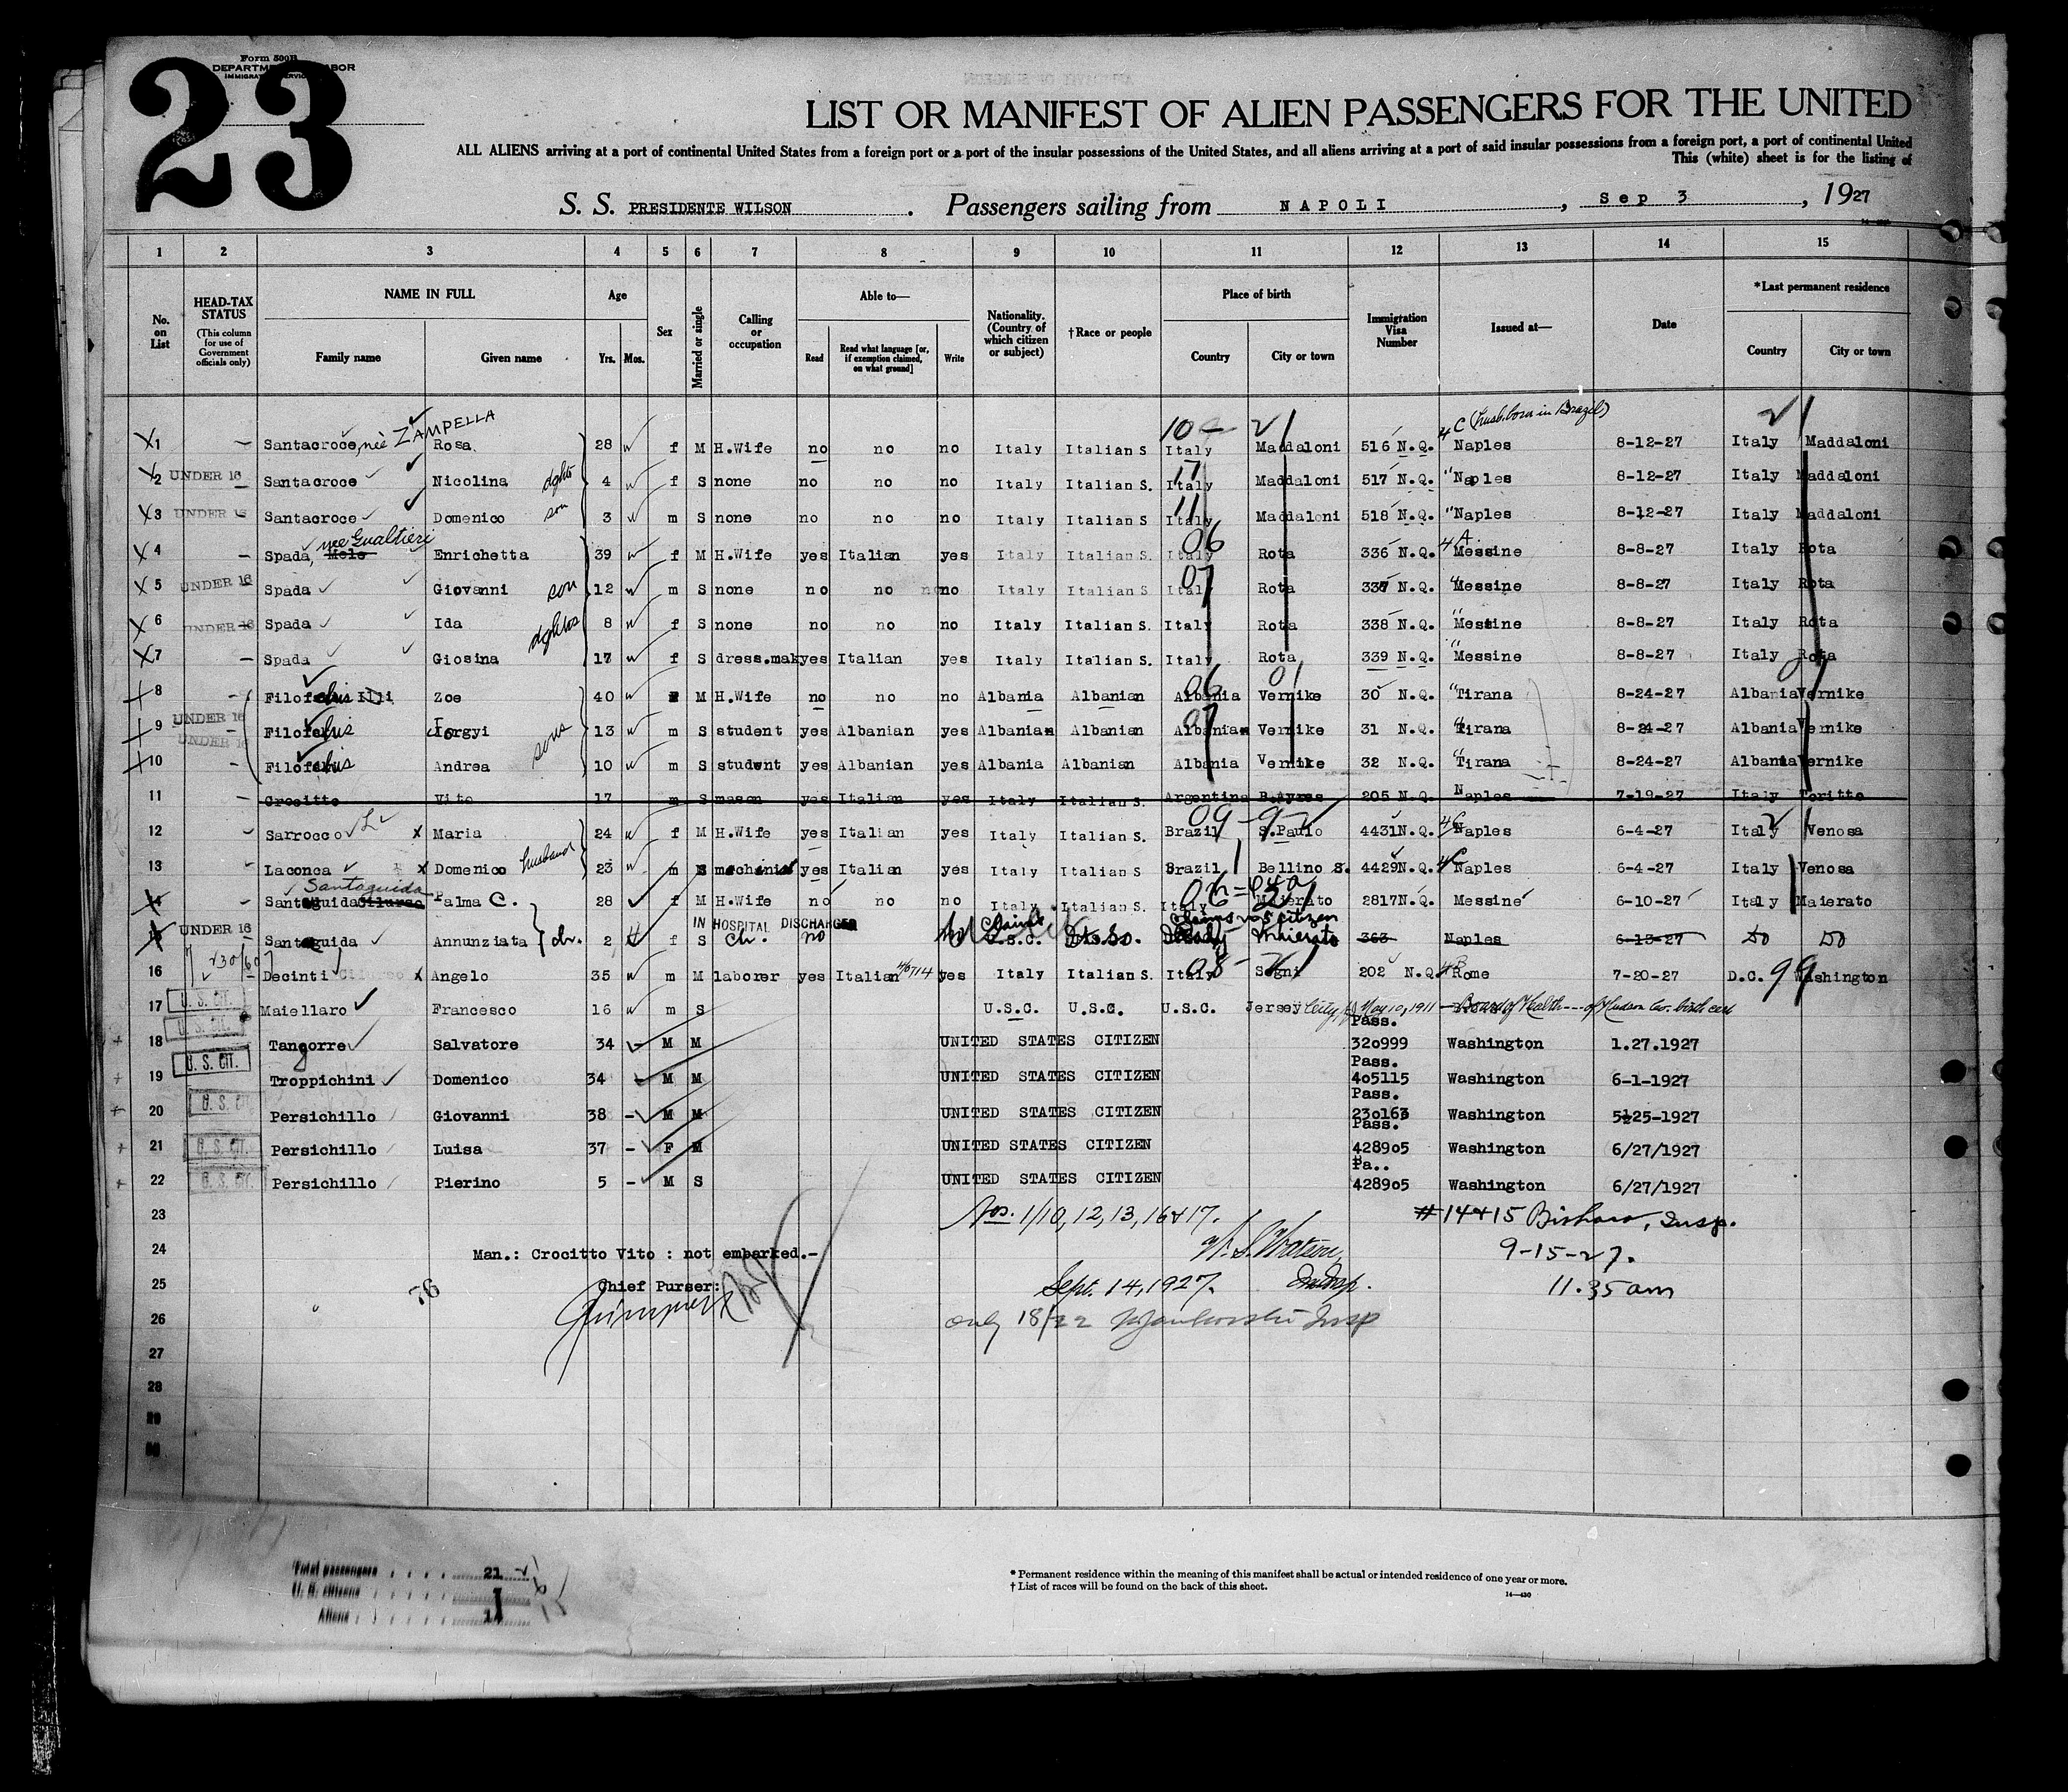 23
Form 500B
DEPARTMENT OF LABOR
IMMIGRATION SERVICE
LIST OR MANIFEST OF ALIEN PASSENGERS FOR THE UNITED
ALL ALIENS arriving at a port of continental United States from a foreign port or a port of the insular possessions of the United States, and all aliens arriving at a port of said insular possessions from a foreign port, a port of continental United
This (white) sheet is for the listing of
S. S. PRESIDENTE WILSON . Passengers sailing from NAPOLI , Sep 3 , 1927
1 2 3 4 5 6 7 8 9 10 11 12 13 14 15
No. on List
HEAD-TAX STATUS (This column for use of Government officials only)
NAME IN FULL Family name Given name
Age Yrs. Mos.
Sex
Married or single
Calling or occupation
Able to— Read Read what language [or, if exemption claimed, on what ground] Write
Nationality. (Country of which citizen or subject)
†Race or people
Place of birth Country City or town
Immigration Visa Number
Issued at—
Date
*Last permanent residence Country City or town
C (husb. born in Brazil)
1 Santacroce, née ZAMPELLA Rosa 28 f M H.Wife no no no Italy Italian S Italy Maddaloni 516 N.Q. Naples 8-12-27 Italy Maddaloni
2 UNDER 16 Santacroce Nicolina dghtr 4 f S none no no no Italy Italian S. Italy Maddaloni 517 N.Q. " Naples 8-12-27 Italy Maddaloni
3 UNDER 16 Santacroce Domenico son 3 m S none no no no Italy Italian S Italy Maddaloni 518 N.Q. " Naples 8-12-27 Italy Maddaloni
4 Spada, Mele nee Gualtieri Enrichetta 39 f M H.Wife yes Italian yes Italy Italian S. Italy Rota 336 N.Q. 4 A Messine 8-8-27 Italy Rota
5 UNDER 16 Spada Giovanni son 12 m S none no no no Italy Italian S Italy Rota 337 N.Q. " Messine 8-8-27 Italy Rota
6 UNDER 16 Spada Ida dghtrs 8 f S none no no no Italy Italian S. Italy Rota 338 N.Q. " Messine 8-8-27 Italy Rota
7 Spada Giosina 17 f S dress.mak yes Italian yes Italy Italian S. Italy Rota 339 N.Q. " Messine 8-8-27 Italy Rota
8 Zoe 40 M H.Wife no no no Albania Albanian Albania Vernike 30 N.Q. " Tirana 8-24-27 Albania Vernike
9 UNDER 16 sons 13 m S student yes Albanian yes Albanian Albanian Albanian Vernike 31 N.Q. " Tirana 8-24-27 Albania Vernike
10 UNDER 16 Andrea 10 m S student yes Albanian yes Albania Albanian Albania Vernike 32 N.Q. " Tirana 8-24-27 Albania Vernike
11 Crocitto Vito 17 m S mason yes Italian yes Italy Italian S. Argentina B.Ayres 205 N.Q. Naples 7-19-27 Italy Toritto
12 Sarrocco x Maria 24 f M H.Wife yes Italian yes Italy Italian S. Brazil S.Paulo 4431 N.Q. 4C Naples 6-4-27 Italy Venosa
13 Laconca x Domenico husband 23 m mechanic yes Italian yes Italy Italian S Brazil Bellino S. 4429 N.Q. 4C Naples 6-4-27 Italy Venosa
Santaguida
14 Palma C. 28 f M H.Wife no no no Italy Italian S. Italy Maierato 2817 N.Q. Messine 6-10-27 Italy Maierato
IN HOSPITAL DISCHARGED
Claims U.S. citizen
15 UNDER 16 Santaguida Annunziata ch. 2 f S ch. no no U.S.C. Maierato 363 Naples 6-13-27 Do Do
16 Decinti x Angelo 35 m M laborer yes Italian yes Italy Italian S. Italy Segni 202 N.Q. 4B Rome 7-20-27 D.C. Washington
17 U. S. CIT. Maiellaro Francesco 16 m S U.S.C. U.S.C. U.S.C. Jersey City, May 10, 1911 — Board of Health --- of Hudson Co. birth cert
18 U. S. CIT. Tangorre Salvatore 34 M M UNITED STATES CITIZEN Pass. 320999 Washington 1.27.1927
19 U. S. CIT. Troppichini Domenico 34 M M UNITED STATES CITIZEN Pass. 405115 Washington 6-1-1927
20 U. S. CIT. Persichillo Giovanni 38 M M UNITED STATES CITIZEN Pass. 230163 Washington 5-25-1927
21 U. S. CIT. Persichillo Luisa 37 F M UNITED STATES CITIZEN Pass. 428905 Washington 6/27/1927
22 U. S. CIT. Persichillo Pierino 5 M S UNITED STATES CITIZEN Pa.. 428905 Washington 6/27/1927
23 Nos. 1/10, 12, 13, 16 & 17. #14+15 Insp.
24 Man.: Crocitto Vito : not embarked.- 9-15-27.
25 76 Chief Purser: Sept. 14, 1927. Insp. 11.35 am
26 only 18/22 Insp
27
28
29
30
Total passengers 21
U. S. citizens
Aliens 14
* Permanent residence within the meaning of this manifest shall be actual or intended residence of one year or more.
† List of races will be found on the back of this sheet.
14—430